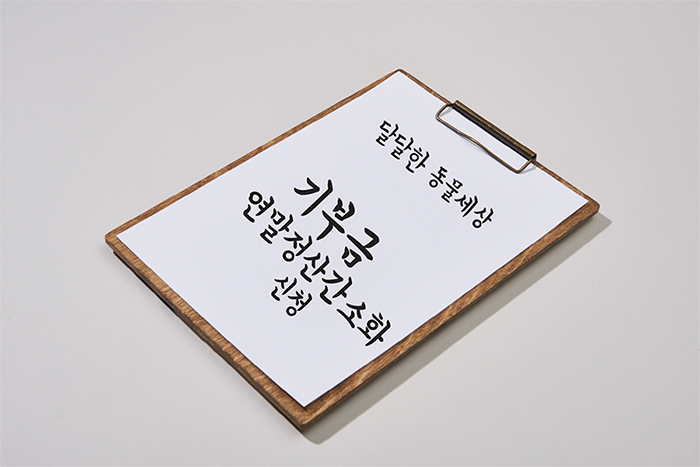 달달한 동물세상
기부금
연말정산간소화
신청